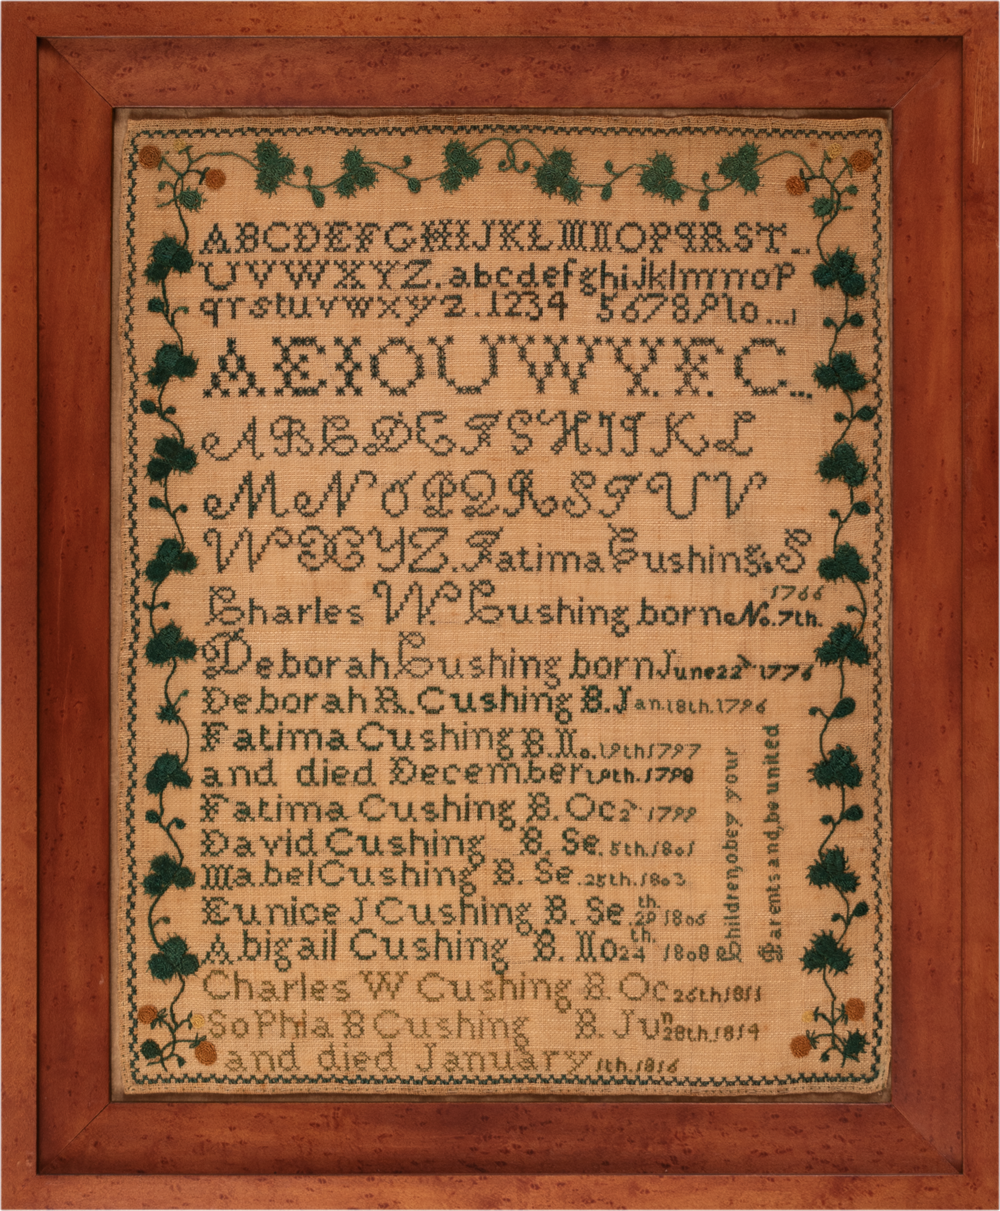 ABCDEFGHIJKLMNOPQRST...
UVWXYZ.abcdefghijklmnop
qrstuvwxyz.1234 5678910...
AEIOUWY.F.C...
ABCDEFGHIJKL
MNOPQRSTUV
WXYZ.Fatima Cushing,S
Charles W. Cushing born No.7th.1766
Deborah Cushing born June22d 1776
Deborah R. Cushing B.Jan.18th.1796
Fatima Cushing B.No.19th1797
and died December 19th.1798
Fatima Cushing B. Oc2d 1799
David Cushing B. Se.5th.1801
Mabel Cushing B. Se.25th.1803
Eunice J Cushing B. Se.29th 1806
Abigail Cushing B. No24th. 1808
Charles W Cushing B. Oc26th1811
SoPhia B Cushing B. Jun28th.1814
and died January 1th.1816
Children,obey your
Parents and,be united